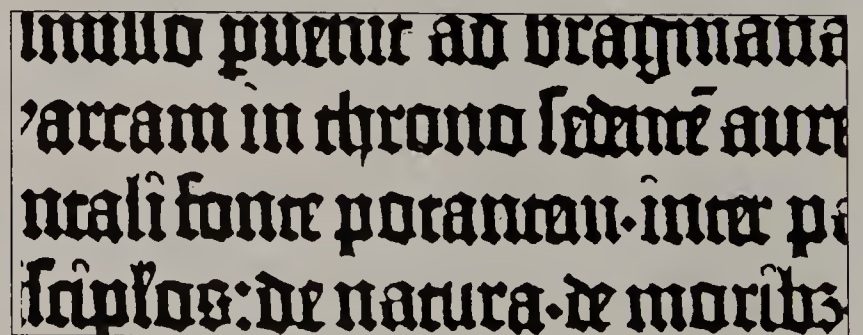 lmisso puenit ad bragmana
arcam in throno sedentē aure
ntali fonte potantem·inter pa
iscipl'os: de natura·de moribz·